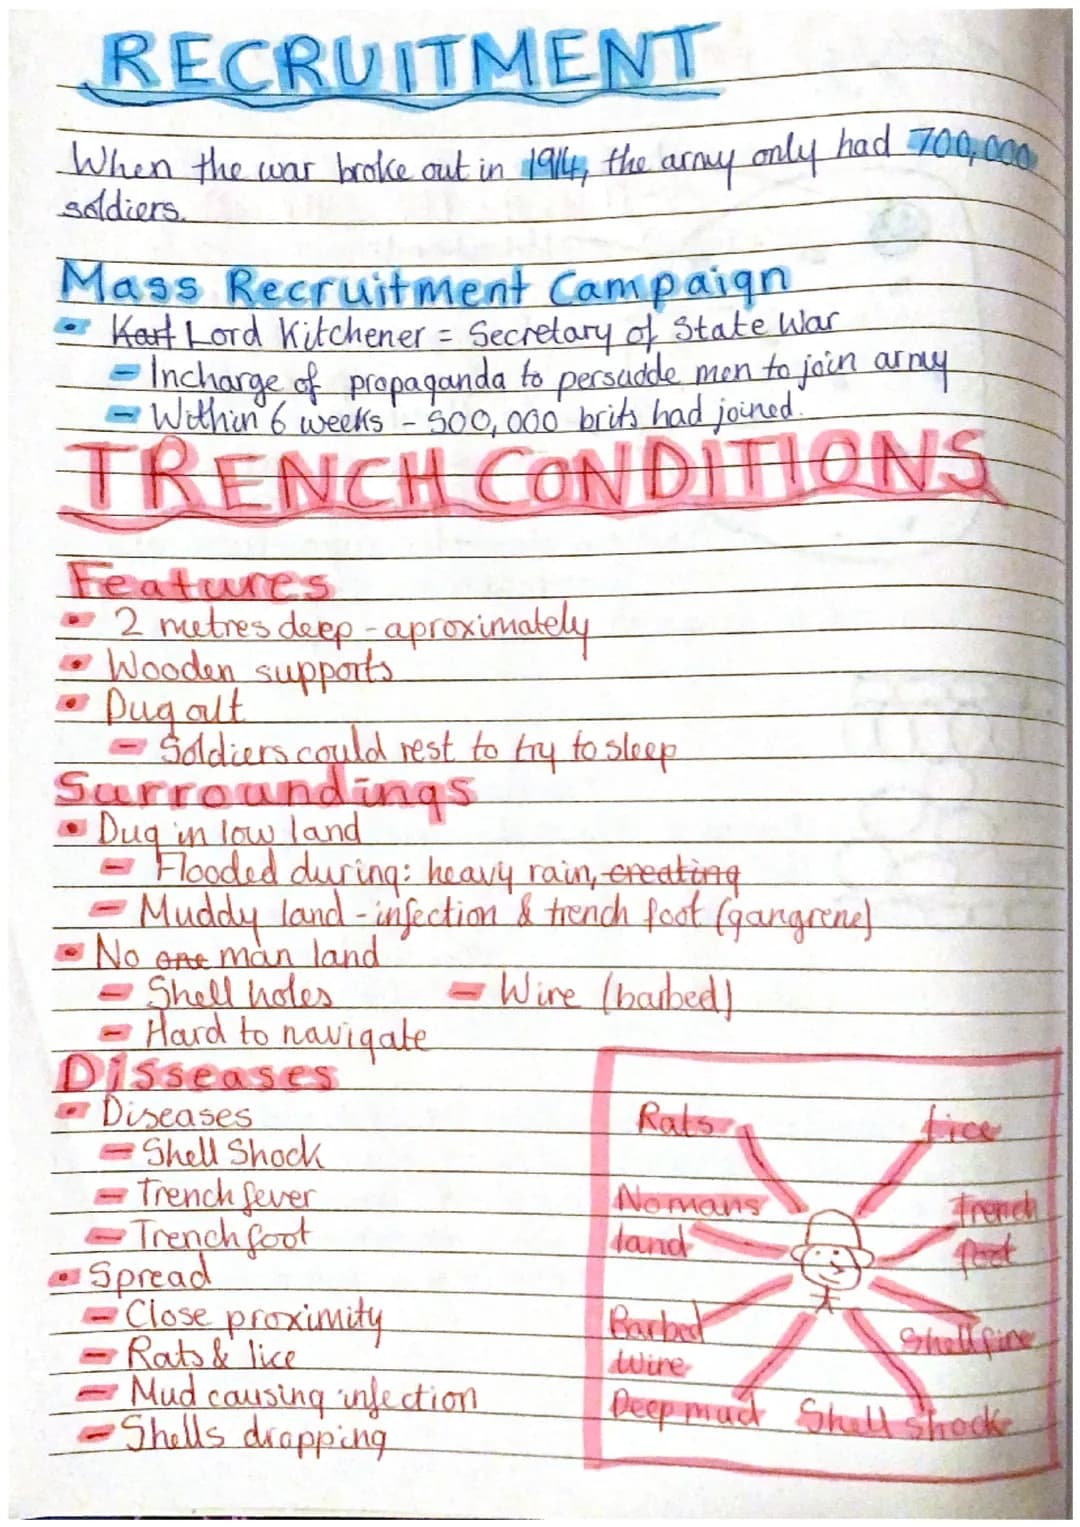 RECRUITMENT
When the war broke out in 1914, the army only had 700,000
soldiers.
Mass Recruitment Campaign
• Kart Lord Kitchener = Secretary of State War
- Incharge of propaganda to persuade men to join army
- Within 6 weeks - 500,000 brits had joined.
TRENCH CONDITIONS
Features
• 2 metres deep - aproximately
• Wooden supports
• Dug out
- Soldiers could rest to try to sleep
Surroundings
• Dug in low land
- Flooded during: heavy rain, creating
- Muddy land - infection & trench foot (gangrene)
• No one man land
- Shell holes - Wire (barbed)
- Hard to navigate
Disseases
• Diseases
- Shell Shock
- Trench fever
- Trench foot
• Spread
- Close proximity
- Rats & lice
- Mud causing infection
- Shells dropping
Rats
Lice
Nomans
land
Trench
foot
Barbed
wire
Shell fire
Deep mud
Shell shock